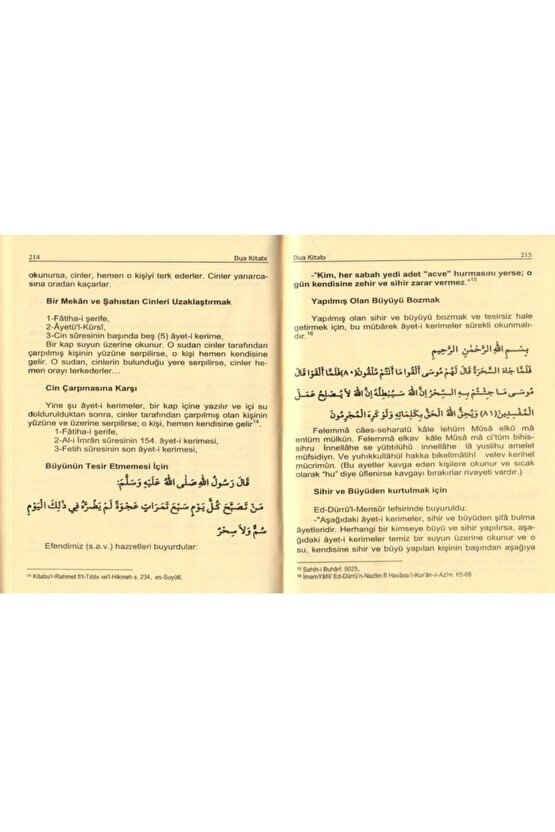 214 Dua Kitabı
okunursa, cinler, hemen o kişiyi terk ederler. Cinler yanarca-
sına oradan kaçarlar.
Bir Mekân ve Şahıstan Cinleri Uzaklaştırmak
1-Fâtiha-i şerife,
2-Âyetü'l-Kürsî,
3-Cin sûresinin başında beş (5) âyet-i kerime,
Bir kap suyun üzerine okunur. O sudan cinler tarafından
çarpılmış kişinin yüzüne serpilirse, o kişi hemen kendisine
gelir. O sudan, cinlerin bulunduğu yere serpilirse, cinler he-
men orayı terkederler…
Cin Çarpmasına Karşı
Yine şu âyet-i kerimeler, bir kap içine yazılır ve içi su
doldurulduktan sonra, cinler tarafından çarpılmış olan kişinin
yüzüne ve üzerine serpilirse; o kişi, hemen kendisine gelir¹⁴.
1-Fâtiha-i şerife,
2-Al-i İmrân sûresinin 154. âyet-i kerimesi,
3-Fetih sûresinin son âyet-i kerimesi,
Büyünün Tesir Etmemesi İçin
قَالَ رَسُولُ اللهِ صَلَّى اللهُ عَلَيْهِ وَسَلَّمَ:
مَنْ تَصَبَّحَ كُلَّ يَوْمٍ سَبْعَ تَمَرَاتٍ عَجْوَةً لَمْ يَضُرَّهُ فِي ذَلِكَ الْيَوْمِ
سُمٌّ وَلاَ سِحْرٌ
Efendimiz (s.a.v.) hazretleri buyurdular:
¹⁴ Kitabu'r-Rahmet fi't-Tıbbı ve'l-Hikmeh s. 234, es-Suyûtî,
Dua Kitabı 215
-"Kim, her sabah yedi adet "acve" hurmasını yerse; o
gün kendisine zehir ve sihir zarar vermez."¹⁵
Yapılmış Olan Büyüyü Bozmak
Yapılmış olan sihir ve büyüyü bozmak ve tesirsiz hale
getirmek için, bu mübârek âyet-i kerimeler sürekli okunmalı-
dır.¹⁶
بِسْمِ اللهِ الرَّحْمٰنِ الرَّحِيمِ
فَلَمَّا جَاءَ السَّحَرَةُ قَالَ لَهُمْ مُوسَى أَلْقُوا مَا أَنْتُمْ مُلْقُونَ (٨٠) فَلَمَّا أَلْقَوْا قَالَ
مُوسَى مَا جِئْتُمْ بِهِ السِّحْرُ إِنَّ اللهَ سَيُبْطِلُهُ إِنَّ اللهَ لَا يُصْلِحُ عَمَلَ
الْمُفْسِدِينَ (٨١) وَيُحِقُّ اللهُ الْحَقَّ بِكَلِمَاتِهِ وَلَوْ كَرِهَ الْمُجْرِمُونَ
Felemmâ câes-seharatü kâle lehüm Mûsâ elkû mâ
entüm mülkûn. Felemmâ elkav kâle Mûsâ mâ ci'tüm bihis-
sihru İnnellâhe se yübtılühû innellahe lâ yuslihu amelel
müfsidîyn. Ve yuhikkullâhül hakka bikelimâtihî velev kerihel
mücrimûn. (Bu ayetler kavga eden kişilere okunur ve sıcak
olarak "hu" diye üflenirse kavgayı bırakırlar rivayeti vardır.)
Sihir ve Büyüden kurtulmak için
Ed-Dürrü'l-Mensûr tefsirinde buyuruldu:
-"Aşağıdaki âyet-i kerimeler, sihir ve büyüden şifâ bulma
âyetleridir. Herhangi bir kimseye büyü ve sihir yapılırsa, aşa-
ğıdaki âyet-i kerimeler temiz bir suyun üzerine okunur ve o
su, kendisine sihir ve büyü yapılan kişinin başından aşağıya
¹⁵ Sahih-i Buhârî: 5025,
¹⁶ İmamYâfiî/ Ed-Dürrü'n-Nazîm fî Havâssı'l-Kur'ân-il-Azîm, 65-66